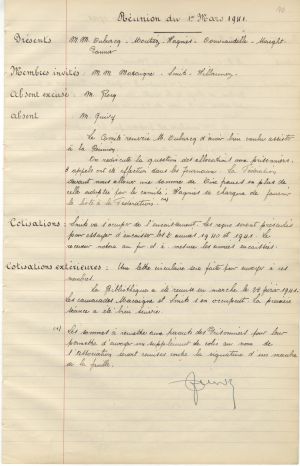 Réunion du 1er Mars 1941.
Présents M.M. Dubucq - Moutoy - Hagnes - Douvaudelle - Maeght
Membres invités : M.M. Macaigne - Smits -
Absent excusé : M.
Absent M. Guidy
Le Comité remercie M. Dubucq d'avoir bien voulu assister
à la
On rediscute la question des allocations aux prisonniers.
3 appels ont été effectués dans les journaux. La Fédération
devant nous allouer une somme de francs en plus de
celle adoptée par le comité, Hagnes se chargera de fournir
la liste à la Fédération. (a)
Cotisations : Smits va s'occuper de l'encaissement. Les reçus seront présentés
pour essayer d'encaisser les 2 années 1940 et 1941. Le
receveur notera au fur et à mesure les années encaissées.
Cotisations extérieures : Une lettre circulaire sera faite pour envoyer à ces
membres.
La Bibliothèque a été remise en marche le 24 févr. 1941.
Les camarades Macaigne et Smits s'en occupent. La première
séance a été bien suivie.
(a) Les sommes à remettre aux parents des Prisonniers pour leur
permettre d'envoyer un supplément de colis au nom de
l'association seront remises contre la signature d'un membre
de la famille.